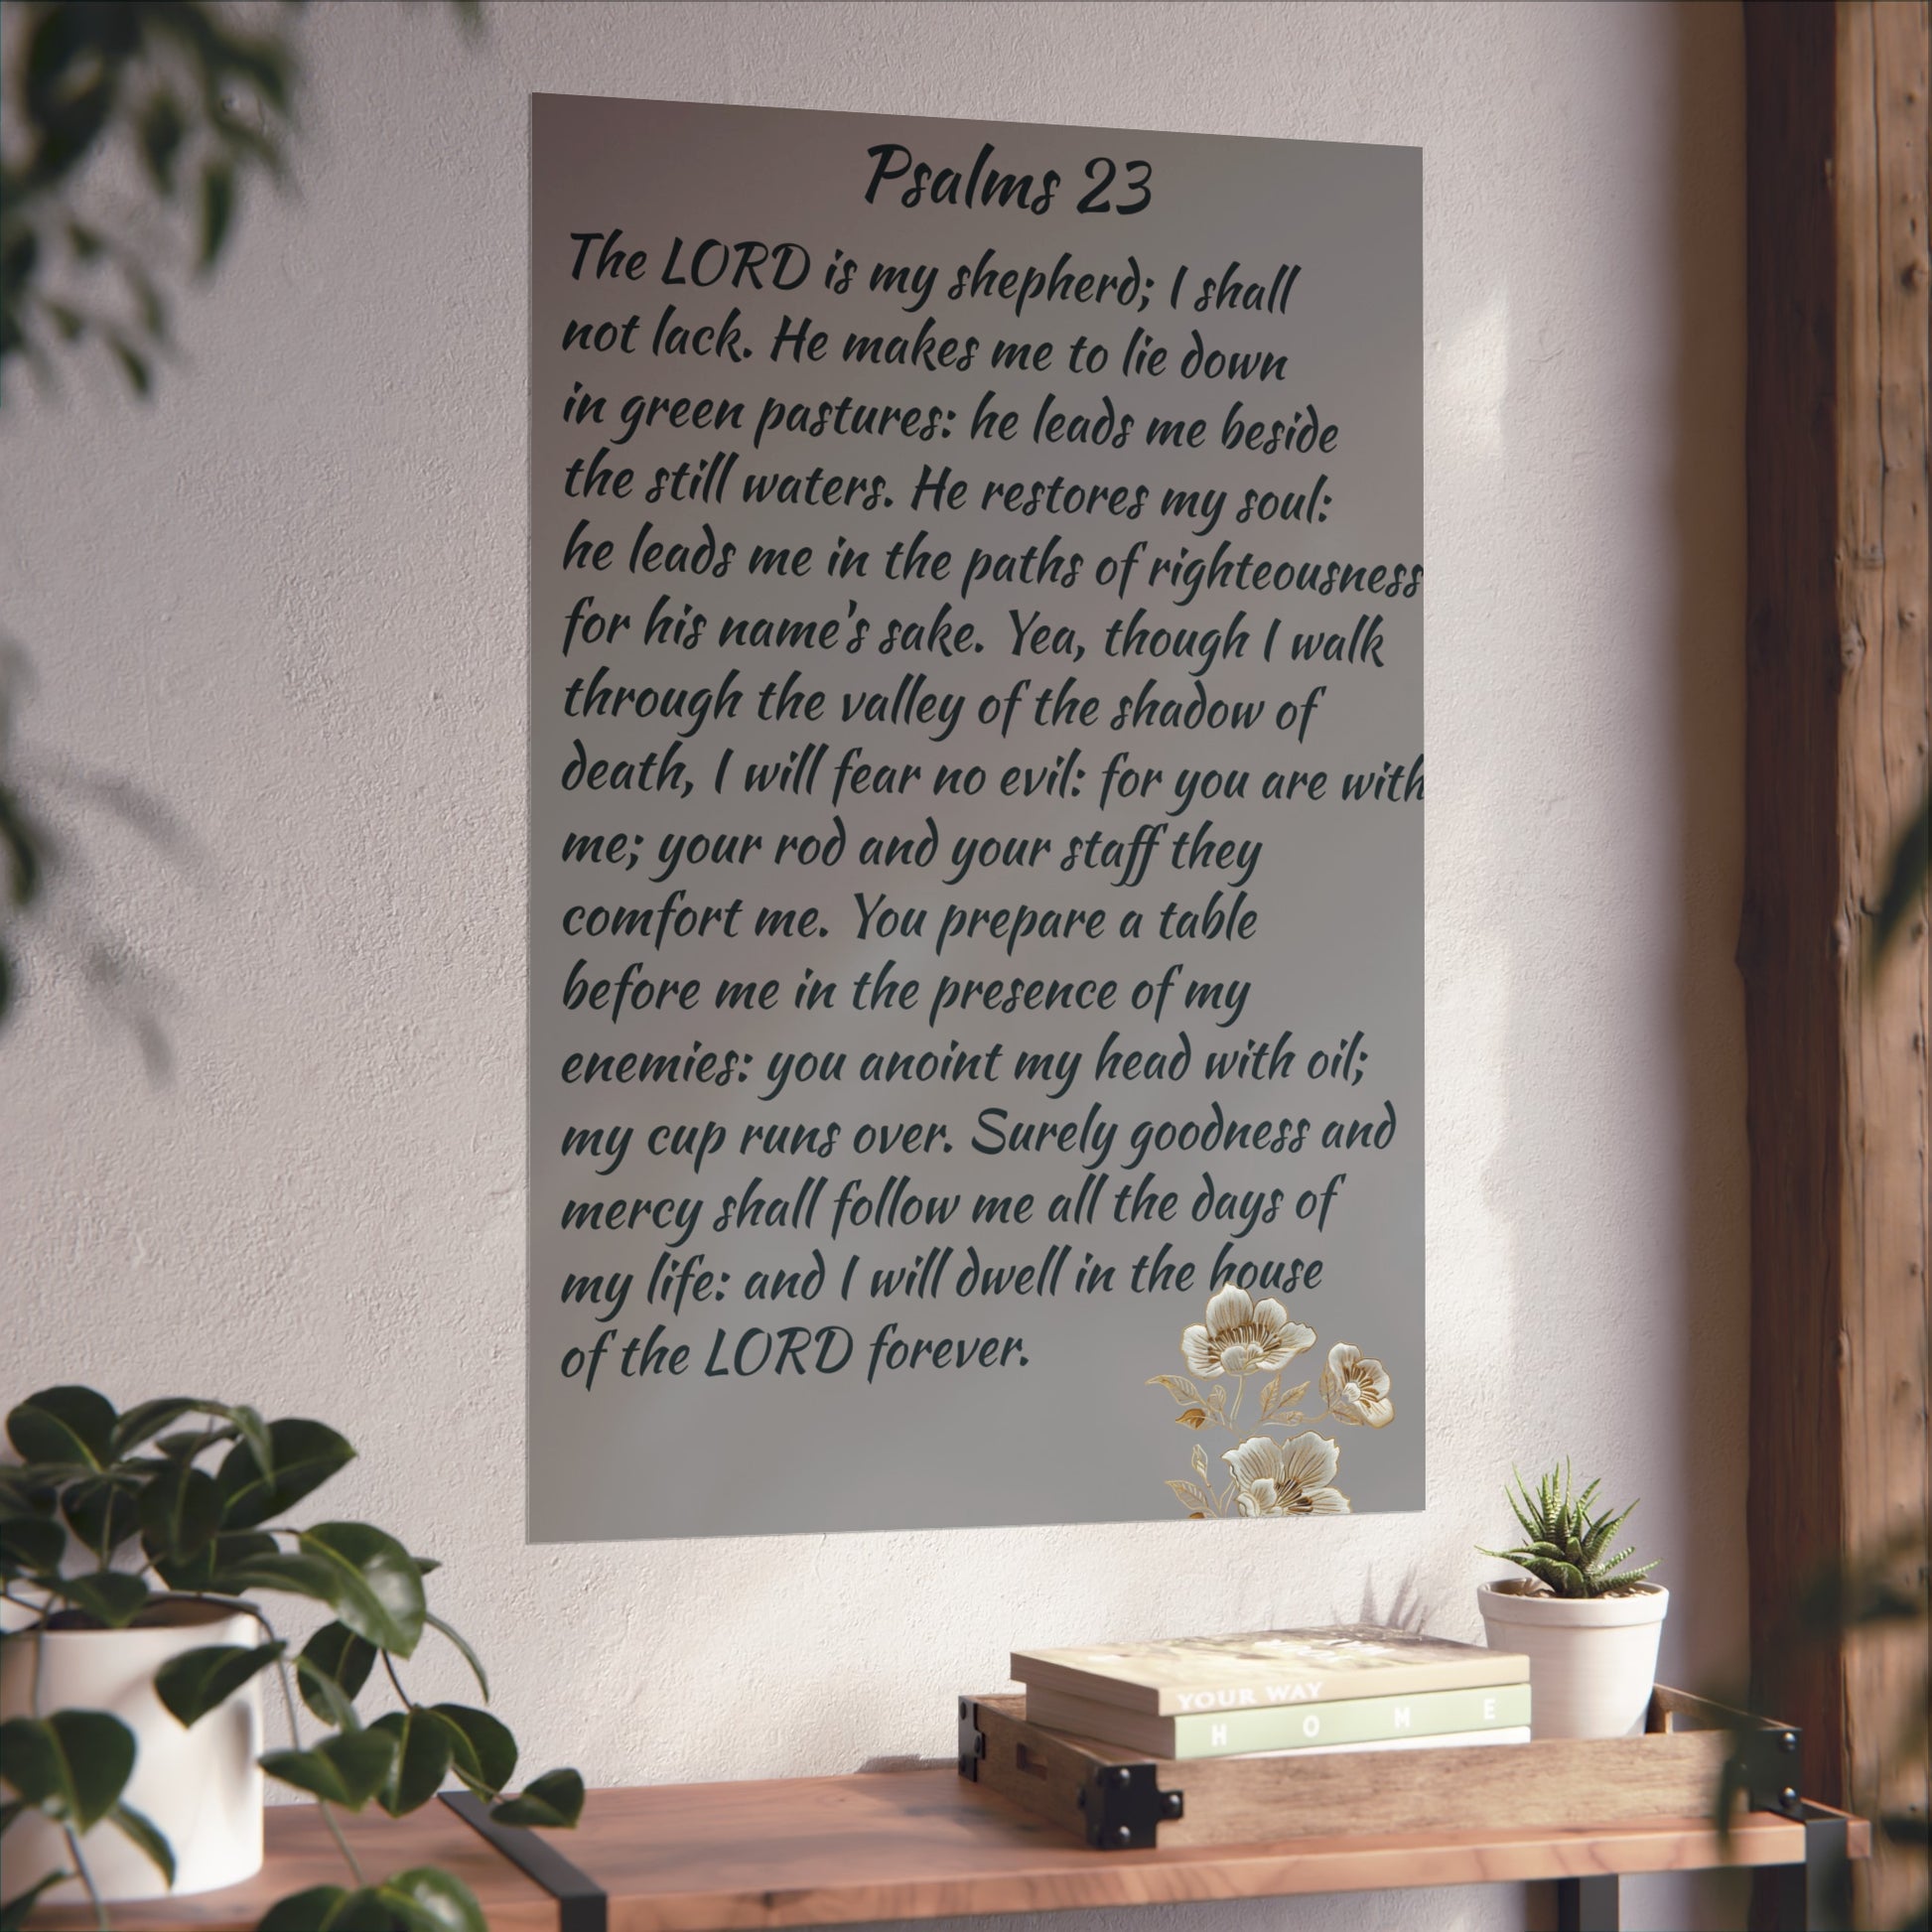 Psalms 23
The LORD is my shepherd; I shall
not lack. He makes me to lie down
in green pastures: he leads me beside
the still waters. He restores my soul:
he leads me in the paths of righteousness
for his name's sake. Yea, though I walk
through the valley of the shadow of
death, I will fear no evil: for you are with
me; your rod and your staff they
comfort me. You prepare a table
before me in the presence of my
enemies: you anoint my head with oil;
my cup runs over. Surely goodness and
mercy shall follow me all the days of
my life: and I will dwell in the house
of the LORD forever.
YOUR WAY
HOME